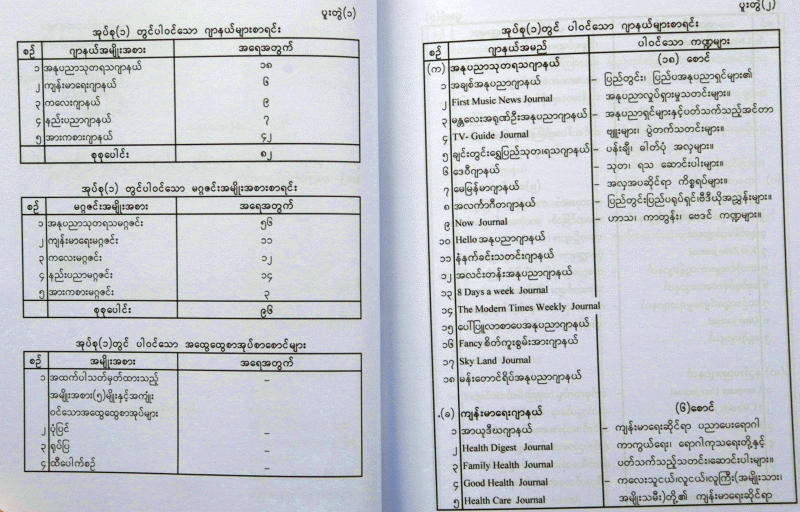 ပူးတွဲ(၁)
အုပ်စု(၁) တွင်ပါဝင်သော ဂျာနယ်များစာရင်း
စဉ် ဂျာနယ်အမျိုးအစား အရေအတွက်
၁ အနုပညာသုတရသဂျာနယ် ၁၈
၂ ကျန်းမာရေးဂျာနယ် ၆
၃ ကလေးဂျာနယ် ၉
၄ နည်းပညာဂျာနယ် ၇
၅ အားကစားဂျာနယ် ၄၂
စုစုပေါင်း ၈၂
အုပ်စု(၁) တွင်ပါဝင်သော မဂ္ဂဇင်းအမျိုးအစားစာရင်း
စဉ် မဂ္ဂဇင်းအမျိုးအစား အရေအတွက်
၁ အနုပညာသုတရသမဂ္ဂဇင်း ၅၆
၂ ကျန်းမာရေးမဂ္ဂဇင်း ၁၁
၃ ကလေးမဂ္ဂဇင်း ၁၂
၄ နည်းပညာမဂ္ဂဇင်း ၁၄
၅ အားကစားမဂ္ဂဇင်း ၃
စုစုပေါင်း ၉၆
အုပ်စု(၁)တွင် ပါဝင်သော အထွေထွေစာအုပ်စာစောင်များ
စဉ် အမျိုးအစား အရေအတွက်
၁ အထက်ပါသတ်မှတ်ထားသည့် –
အမျိုးအစား(၅)မျိုးနှင့်အကျုံး
ဝင်သောအထွေထွေစာအုပ်များ
၂ ပုံပြင် –
၃ ရုပ်ပြ –
၄ ထီပေါက်စဉ် –
ပူးတွဲ(၂)
အုပ်စု(၁)တွင် ပါဝင်သော ဂျာနယ်များစာရင်း
စဉ် ဂျာနယ်အမည် ပါဝင်သော ကဏ္ဍများ
(က) အနုပညာသုတရသဂျာနယ် (၁၈) စောင်
၁ အချစ်အနုပညာဂျာနယ် – ပြည်တွင်း၊ ပြည်ပအနုပညာရှင်များ၏
၂ First Music News Journal အနုပညာလှုပ်ရှားမှုသတင်းများ။
၃ မန္တလေးအရုဏ်ဦးအနုပညာဂျာနယ် – အနုပညာရှင်များနှင့်ပတ်သက်သည့်အင်တာ
၄ TV- Guide Journal ဗျူးများ၊ ပွဲတက်သတင်းများ။
၅ ချင်းတွင်းရွှေပြည်သုတ၊ရသဂျာနယ် – ပန်းချီ၊ ဓါတ်ပုံ အလှများ။
၆ ဒေဝီဂျာနယ် – သုတ၊ ရသ ဆောင်းပါးများ။
၇ မေမြန်မာဂျာနယ် – အလှအပဆိုင်ရာ ကိစ္စရပ်များ။
၈ အလင်္ကာဂီတဂျာနယ် – ပြည်တွင်းပြည်ပရုပ်ရှင်၊ဗီဒီယိုအညွှန်းများ။
၉ Now Journal – ဟာသ၊ ကာတွန်း၊ ဗေဒင် ကဏ္ဍများ။
၁၀ Hello အနုပညာဂျာနယ်
၁၁ နံနက်ခင်းသတင်းဂျာနယ်
၁၂ အလင်းတန်းအနုပညာဂျာနယ်
၁၃ 8 Days a week Journal
၁၄ The Modern Times Weekly Journal
၁၅ ပေါ်ပြူလာစာပေအနုပညာဂျာနယ်
၁၆ Fancy စိတ်ကူးစွမ်းအားဂျာနယ်
၁၇ Sky Land Journal
၁၈ မန်းတောင်ရိပ်အနုပညာဂျာနယ်
(ခ) ကျန်းမာရေးဂျာနယ် (၆)စောင်
၁ အာယုဒီဃဂျာနယ် – ကျန်းမာရေးဆိုင်ရာ ပညာပေးရောဂါ
၂ Health Digest Journal ကာကွယ်ရေး၊ ရောဂါကုသရေးတို့နှင့်
၃ Family Health Journal ပတ်သက်သည့်သတင်း၊ဆောင်းပါးများ။
၄ Good Health Journal – ကလေးသူငယ်၊လူငယ်၊လူကြီး(အမျိုးသား၊
၅ Health Care Journal အမျိုးသမီး)တို့၏ ကျန်းမာရေးဆိုင်ရာ